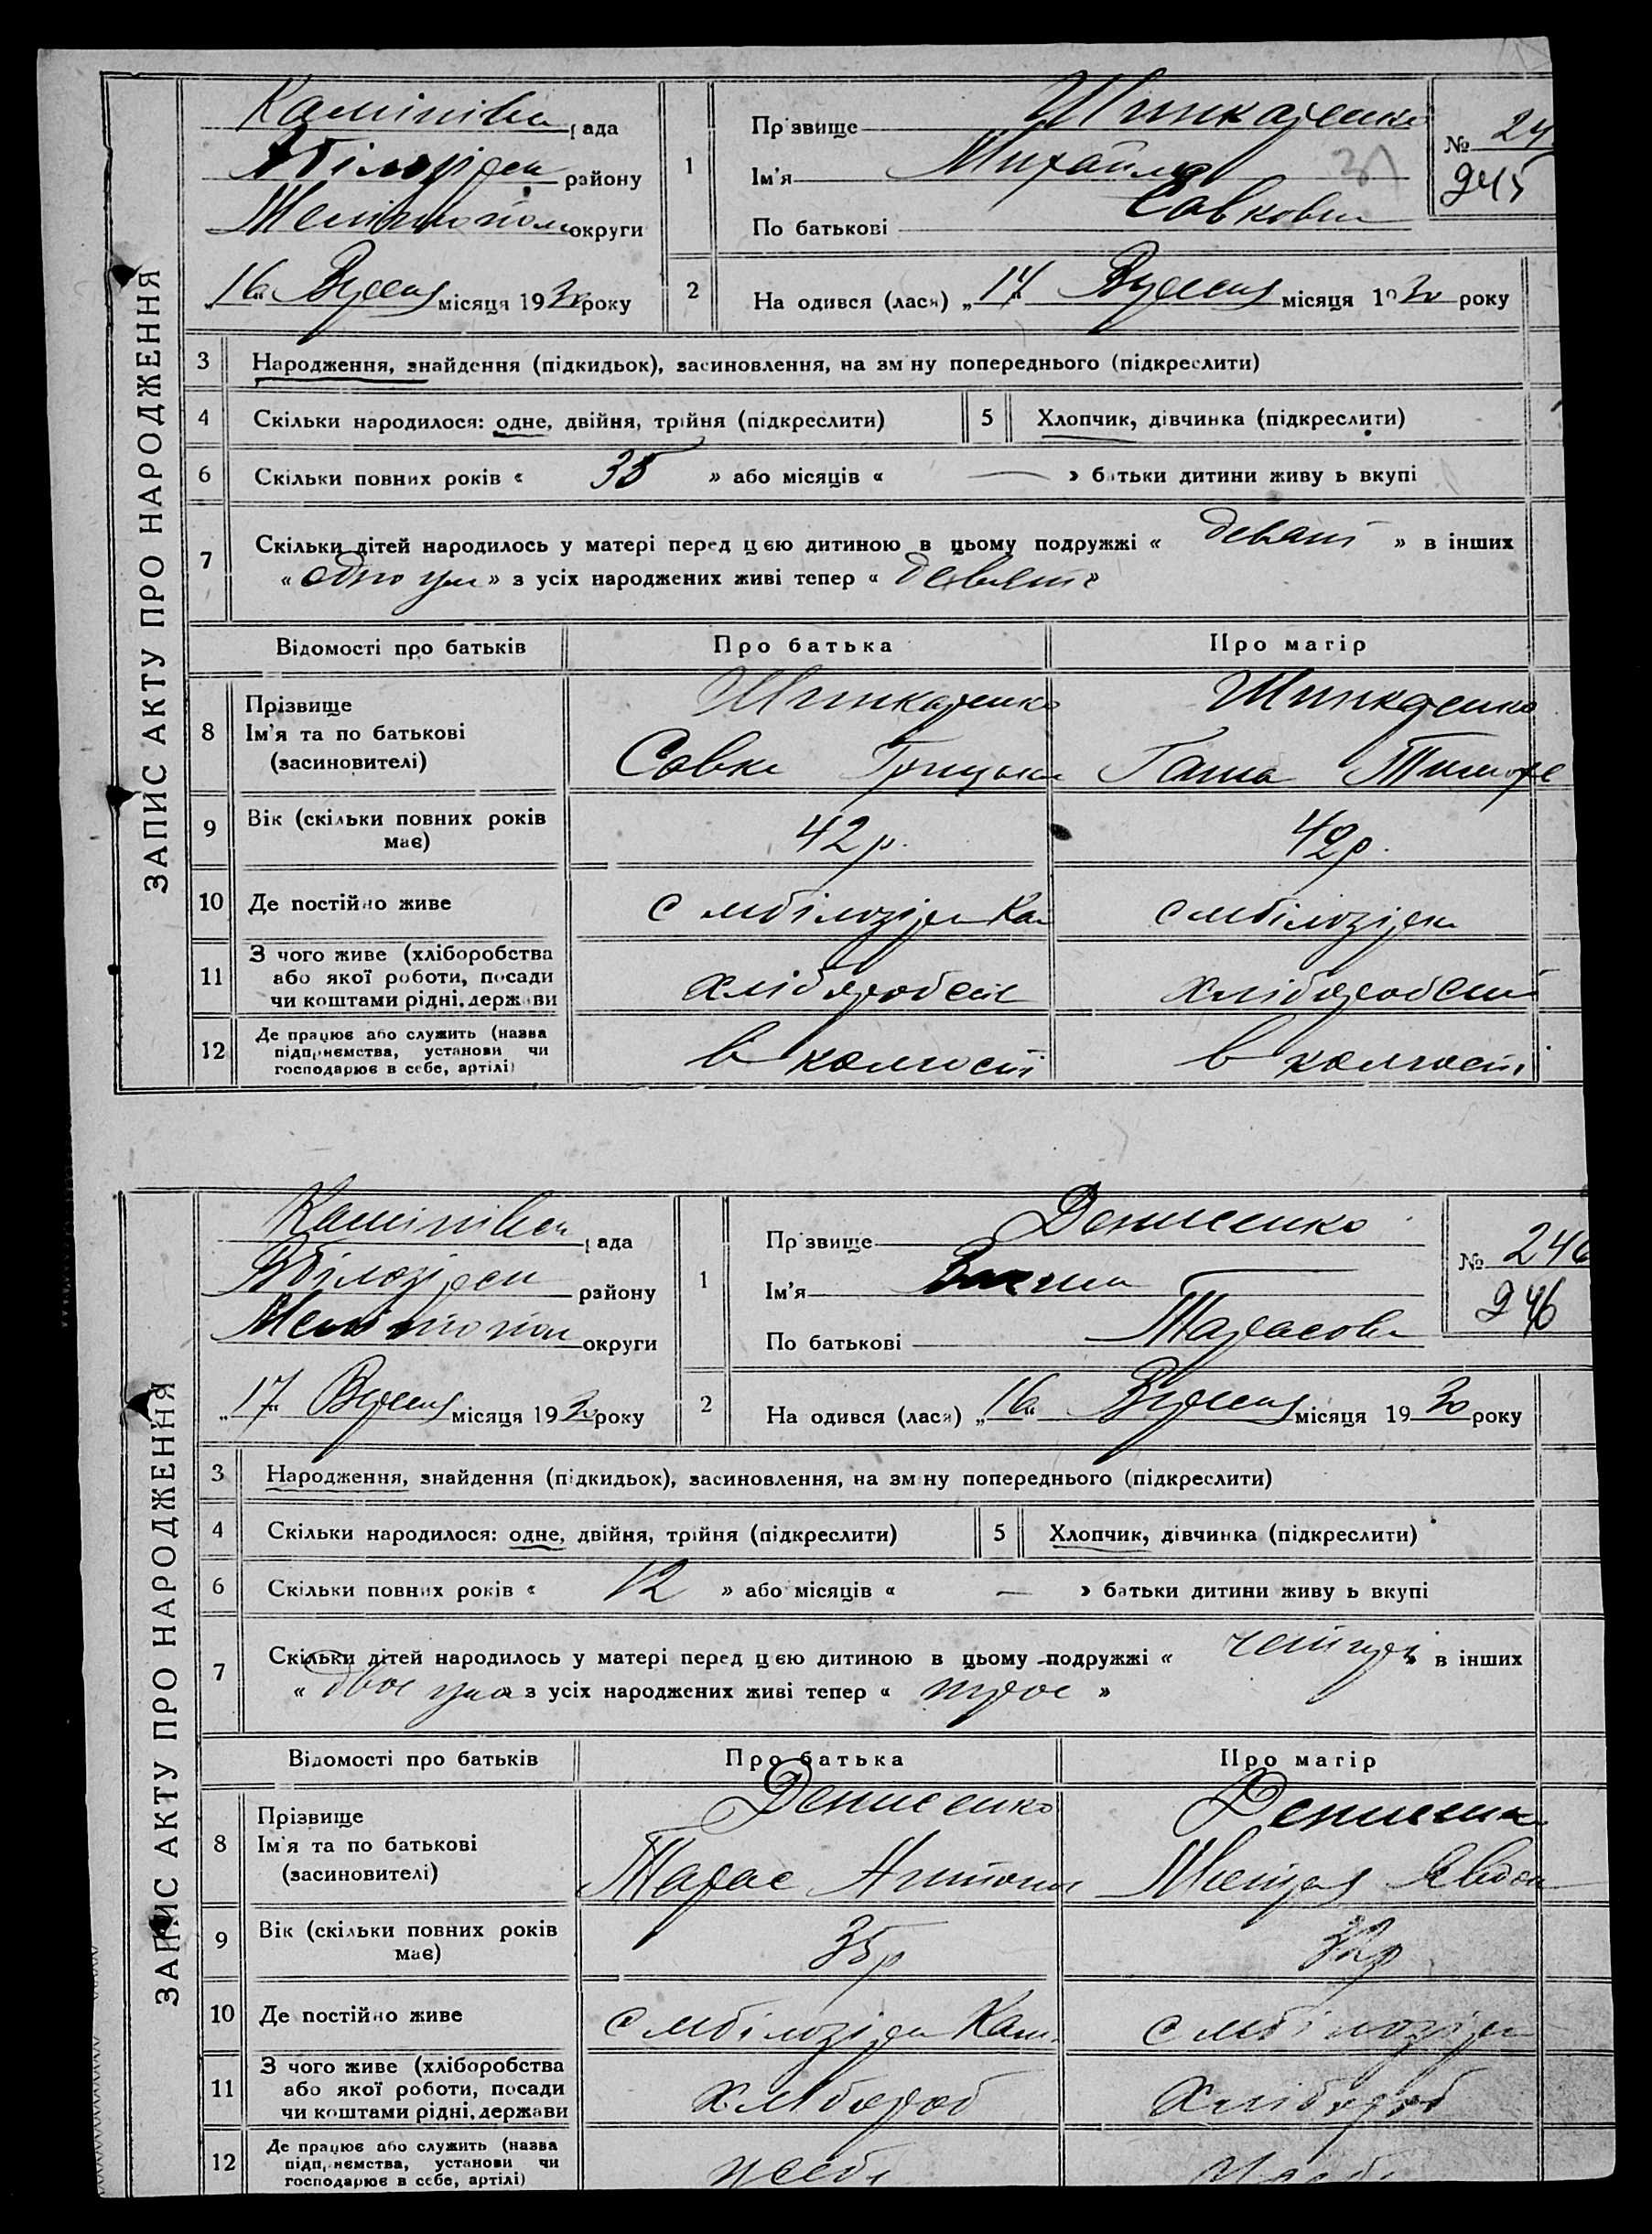 ЗАПИС АКТУ ПРО НАРОДЖЕННЯ
рада
району
Меліто округи
"16" Вересня місяця 1930 року
1
Прізвище Шинкаренко
Ім'я Михайло
По батькові Савкович
№ 24
245
2
Народився (лася) „14" Вересня місяця 1930 року
3 Народження, знайдення (підкидьок), засиновлення, на зміну попереднього (підкреслити)
4 Скільки народилося: одне, двійня, трійня (підкреслити)
5 Хлопчик, дівчинка (підкреслити)
6 Скільки повних років « 35 » або місяців « — » батьки дитини живуть вкупі
7 Скільки дітей народилось у матері перед цією дитиною в цьому подружжі « » в інших
« » з усіх народжених живі тепер « »
Відомості про батьків Про батька Про матір
8 Прізвище
Ім'я та по батькові
(засиновителі)
Шинкаренко
Савка
Шинкаренко
Ганна Тимофе
9 Вік (скільки повних років має)
42 р.
42 р.
10 Де постійно живе
с мбілозірка Кам
с мбілозірка
11 З чого живе (хліборобства
або якої роботи, посади
чи коштами рідні, держави
12 Де працює або служить (назва
підприємства, установи чи
господарює в себе, артілі)
в колгоспі
в колгоспі
ЗАПИС АКТУ ПРО НАРОДЖЕННЯ
рада
району
округи
„17" Вересня місяця 1930 року
1
Прізвище Денисенко
Ім'я
По батькові Тарасов
№ 246
246
2
Народився (лася) „16" Вересня місяця 1930 року
3 Народження, знайдення (підкидьок), засиновлення, на зміну попереднього (підкреслити)
4 Скільки народилося: одне, двійня, трійня (підкреслити)
5 Хлопчик, дівчинка (підкреслити)
6 Скільки повних років « 12 » або місяців « — » батьки дитини живуть вкупі
7 Скільки дітей народилось у матері перед цією дитиною в цьому подружжі « » в інших
« двоє » з усіх народжених живі тепер « троє »
Відомості про батьків Про батька Про матір
8 Прізвище
Ім'я та по батькові
(засиновителі)
Денисенко
Тарас Антонов
9 Вік (скільки повних років має)
35 р
32 р
10 Де постійно живе
с мбілозірка Кам.
с мбілозірк
11 З чого живе (хліборобства
або якої роботи, посади
чи коштами рідні, держави
хлібороб
хлібороб
12 Де працює або служить (назва
підприємства, установи чи
господарює в себе, артілі)